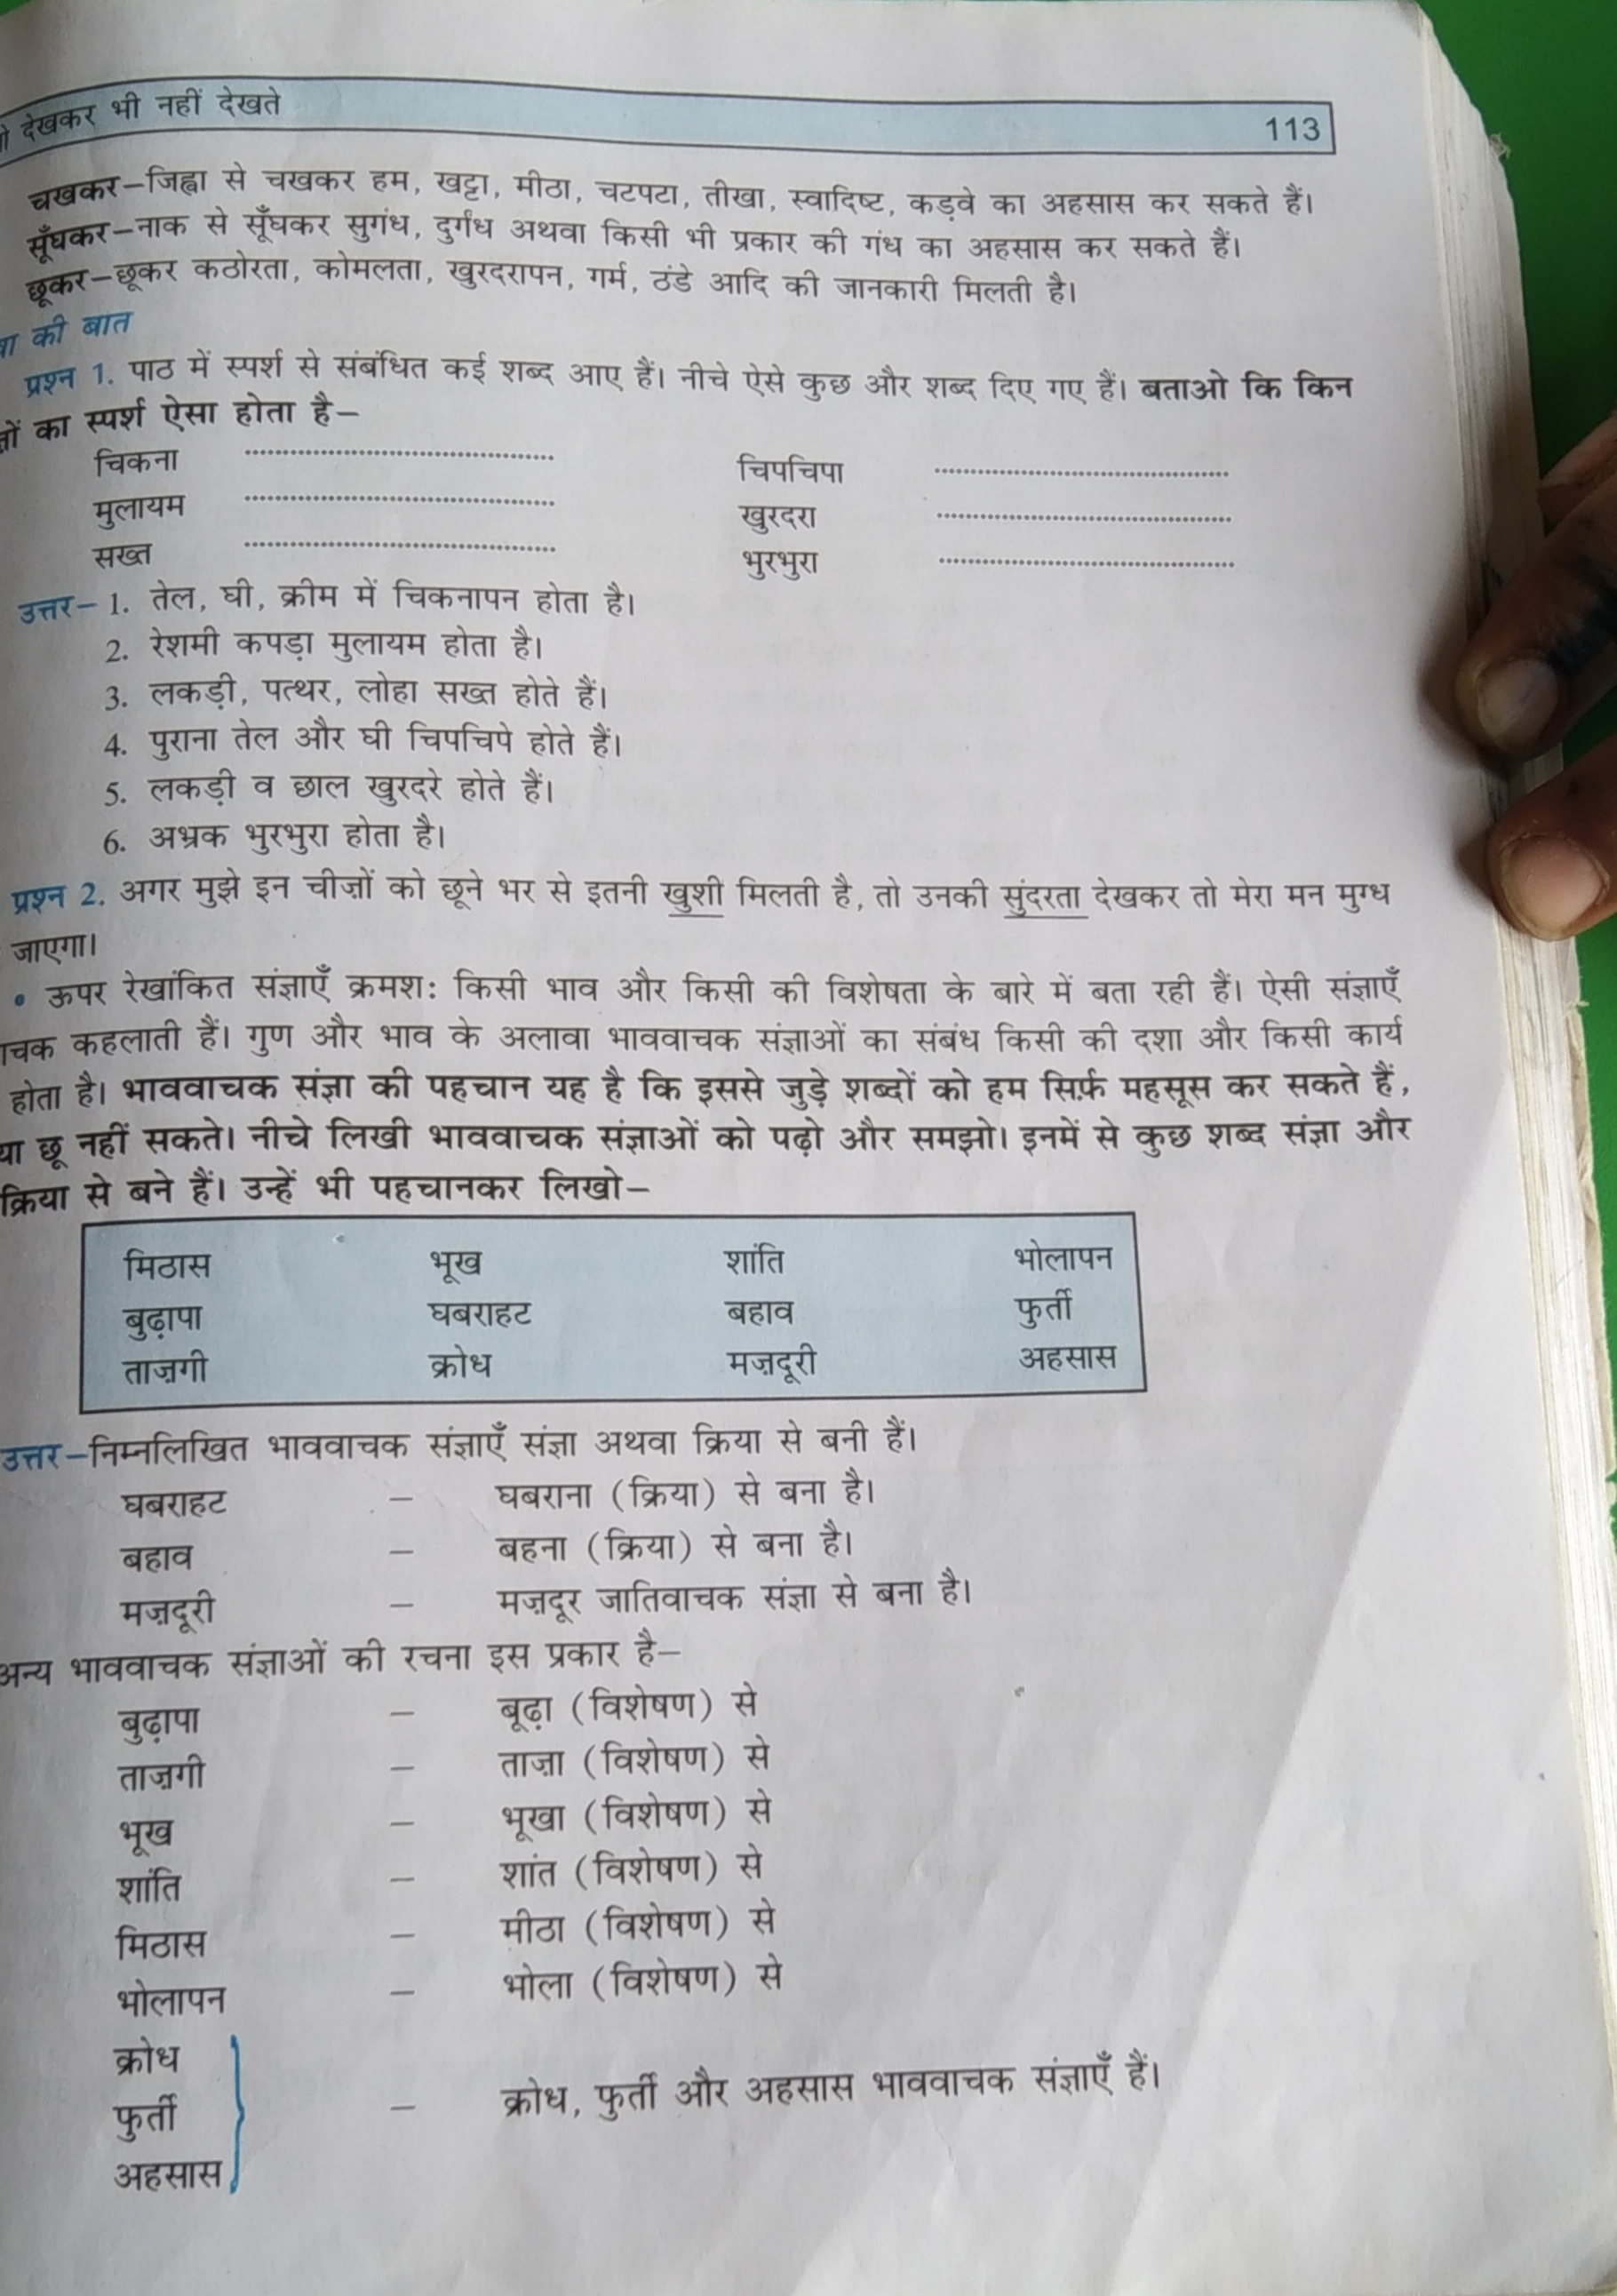 देखकर भी नहीं देखते
113
चखकर–जिह्वा से चखकर हम, खट्टा, मीठा, चटपटा, तीखा, स्वादिष्ट, कड़वे का अहसास कर सकते हैं।
सूँघकर–नाक से सूँघकर सुगंध, दुर्गंध अथवा किसी भी प्रकार की गंध का अहसास कर सकते हैं।
छूकर–छूकर कठोरता, कोमलता, खुरदरापन, गर्म, ठंडे आदि की जानकारी मिलती है।
की बात
प्रश्न 1. पाठ में स्पर्श से संबंधित कई शब्द आए हैं। नीचे ऐसे कुछ और शब्द दिए गए हैं। बताओ कि किन
का स्पर्श ऐसा होता है–
चिकना .......... चिपचिपा ..........
मुलायम .......... खुरदरा ..........
सख्त .......... भुरभुरा ..........
उत्तर– 1. तेल, घी, क्रीम में चिकनापन होता है।
2. रेशमी कपड़ा मुलायम होता है।
3. लकड़ी, पत्थर, लोहा सख्त होते हैं।
4. पुराना तेल और घी चिपचिपे होते हैं।
5. लकड़ी व छाल खुरदरे होते हैं।
6. अभ्रक भुरभुरा होता है।
प्रश्न 2. अगर मुझे इन चीज़ों को छूने भर से इतनी खुशी मिलती है, तो उनकी सुंदरता देखकर तो मेरा मन मुग्ध
जाएगा।
• ऊपर रेखांकित संज्ञाएँ क्रमश: किसी भाव और किसी की विशेषता के बारे में बता रही हैं। ऐसी संज्ञाएँ
कहलाती हैं। गुण और भाव के अलावा भाववाचक संज्ञाओं का संबंध किसी की दशा और किसी कार्य
होता है। भाववाचक संज्ञा की पहचान यह है कि इससे जुड़े शब्दों को हम सिर्फ़ महसूस कर सकते हैं,
या छू नहीं सकते। नीचे लिखी भाववाचक संज्ञाओं को पढ़ो और समझो। इनमें से कुछ शब्द संज्ञा और
क्रिया से बने हैं। उन्हें भी पहचानकर लिखो–
मिठास भूख शांति भोलापन
बुढ़ापा घबराहट बहाव फुर्ती
ताज़गी क्रोध मज़दूरी अहसास
उत्तर–निम्नलिखित भाववाचक संज्ञाएँ संज्ञा अथवा क्रिया से बनी हैं।
घबराहट – घबराना (क्रिया) से बना है।
बहाव – बहना (क्रिया) से बना है।
मज़दूरी – मज़दूर जातिवाचक संज्ञा से बना है।
अन्य भाववाचक संज्ञाओं की रचना इस प्रकार है–
बुढ़ापा – बूढ़ा (विशेषण) से
ताज़गी – ताज़ा (विशेषण) से
भूख – भूखा (विशेषण) से
शांति – शांत (विशेषण) से
मिठास – मीठा (विशेषण) से
भोलापन – भोला (विशेषण) से
क्रोध
फुर्ती – क्रोध, फुर्ती और अहसास भाववाचक संज्ञाएँ हैं।
अहसास